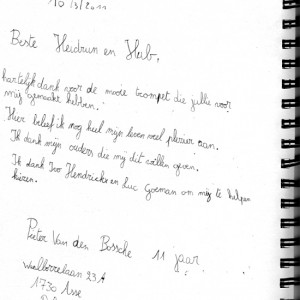 10/3/2011
Beste Heidrun en Hub,
hartelijk dank voor de mooie trompet die jullie voor
mij gemaakt hebben.
Hier beleef ik nog heel mijn leven veel plezier aan.
Ik dank mijn ouders die mij dit willen geven.
Ik dank Ivo Hendrickx en Luc Goeman om mij te helpen
kiezen.
Pieter Van den Bossche 11 jaar
23 A
1730 Asse